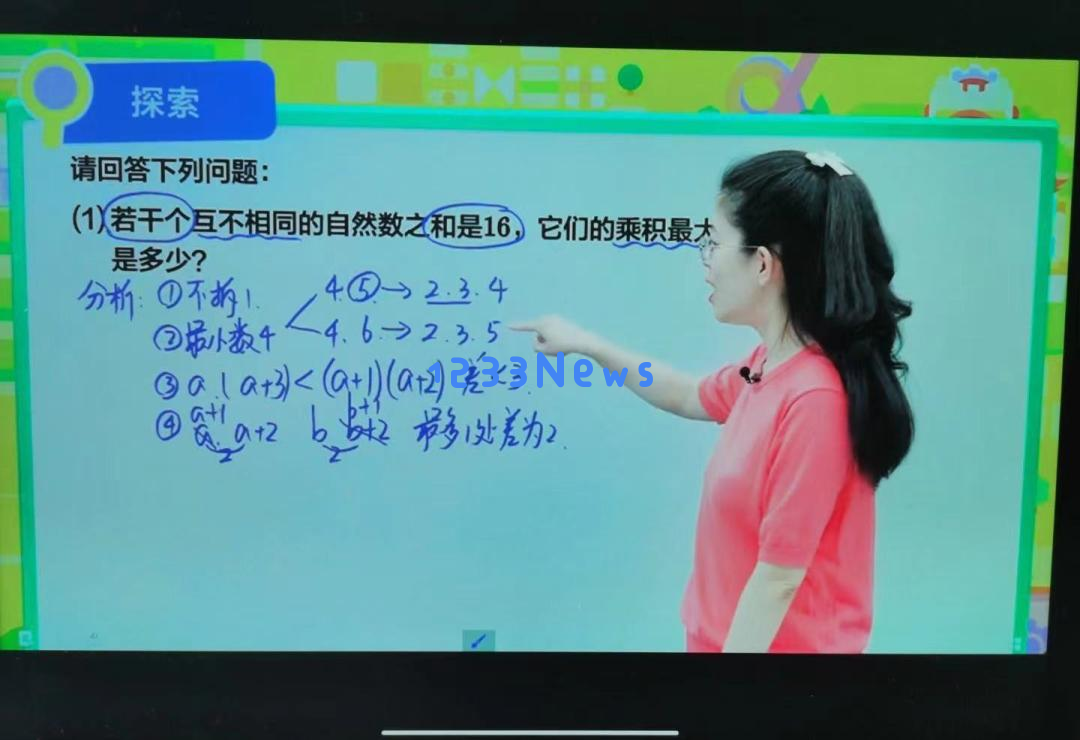 探索
请回答下列问题：
(1)若干个互不相同的自然数之和是16，它们的乘积最大
是多少?
分析: ①不拆1.
4.⑤→2.3.4
②最小数4
4.6→2.3.5
③a.(a+3)<(a+1)(a+2) 差<3.
1233News
a+1 b+1
④a. a+2 b b+2 最多1处差为2.
2 2